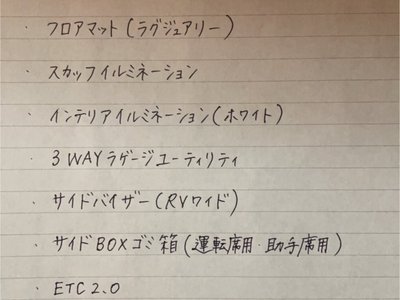 ・フロアマット(ラグジュアリー)
・スカッフイルミネーション
・インテリアイルミネーション(ホワイト)
・3WAYラゲージユーティリティ
・サイドバイザー(RVワイド)
・サイドBOXゴミ箱(運転席用・助手席用)
・ETC2.0